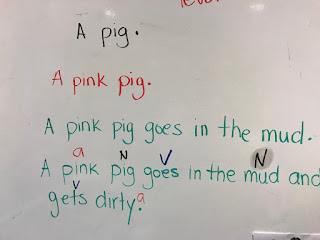 A pig.
A pink pig.
A pink pig goes in the mud.
a N V N
A pink pig goes in the mud and
V a
gets dirty.